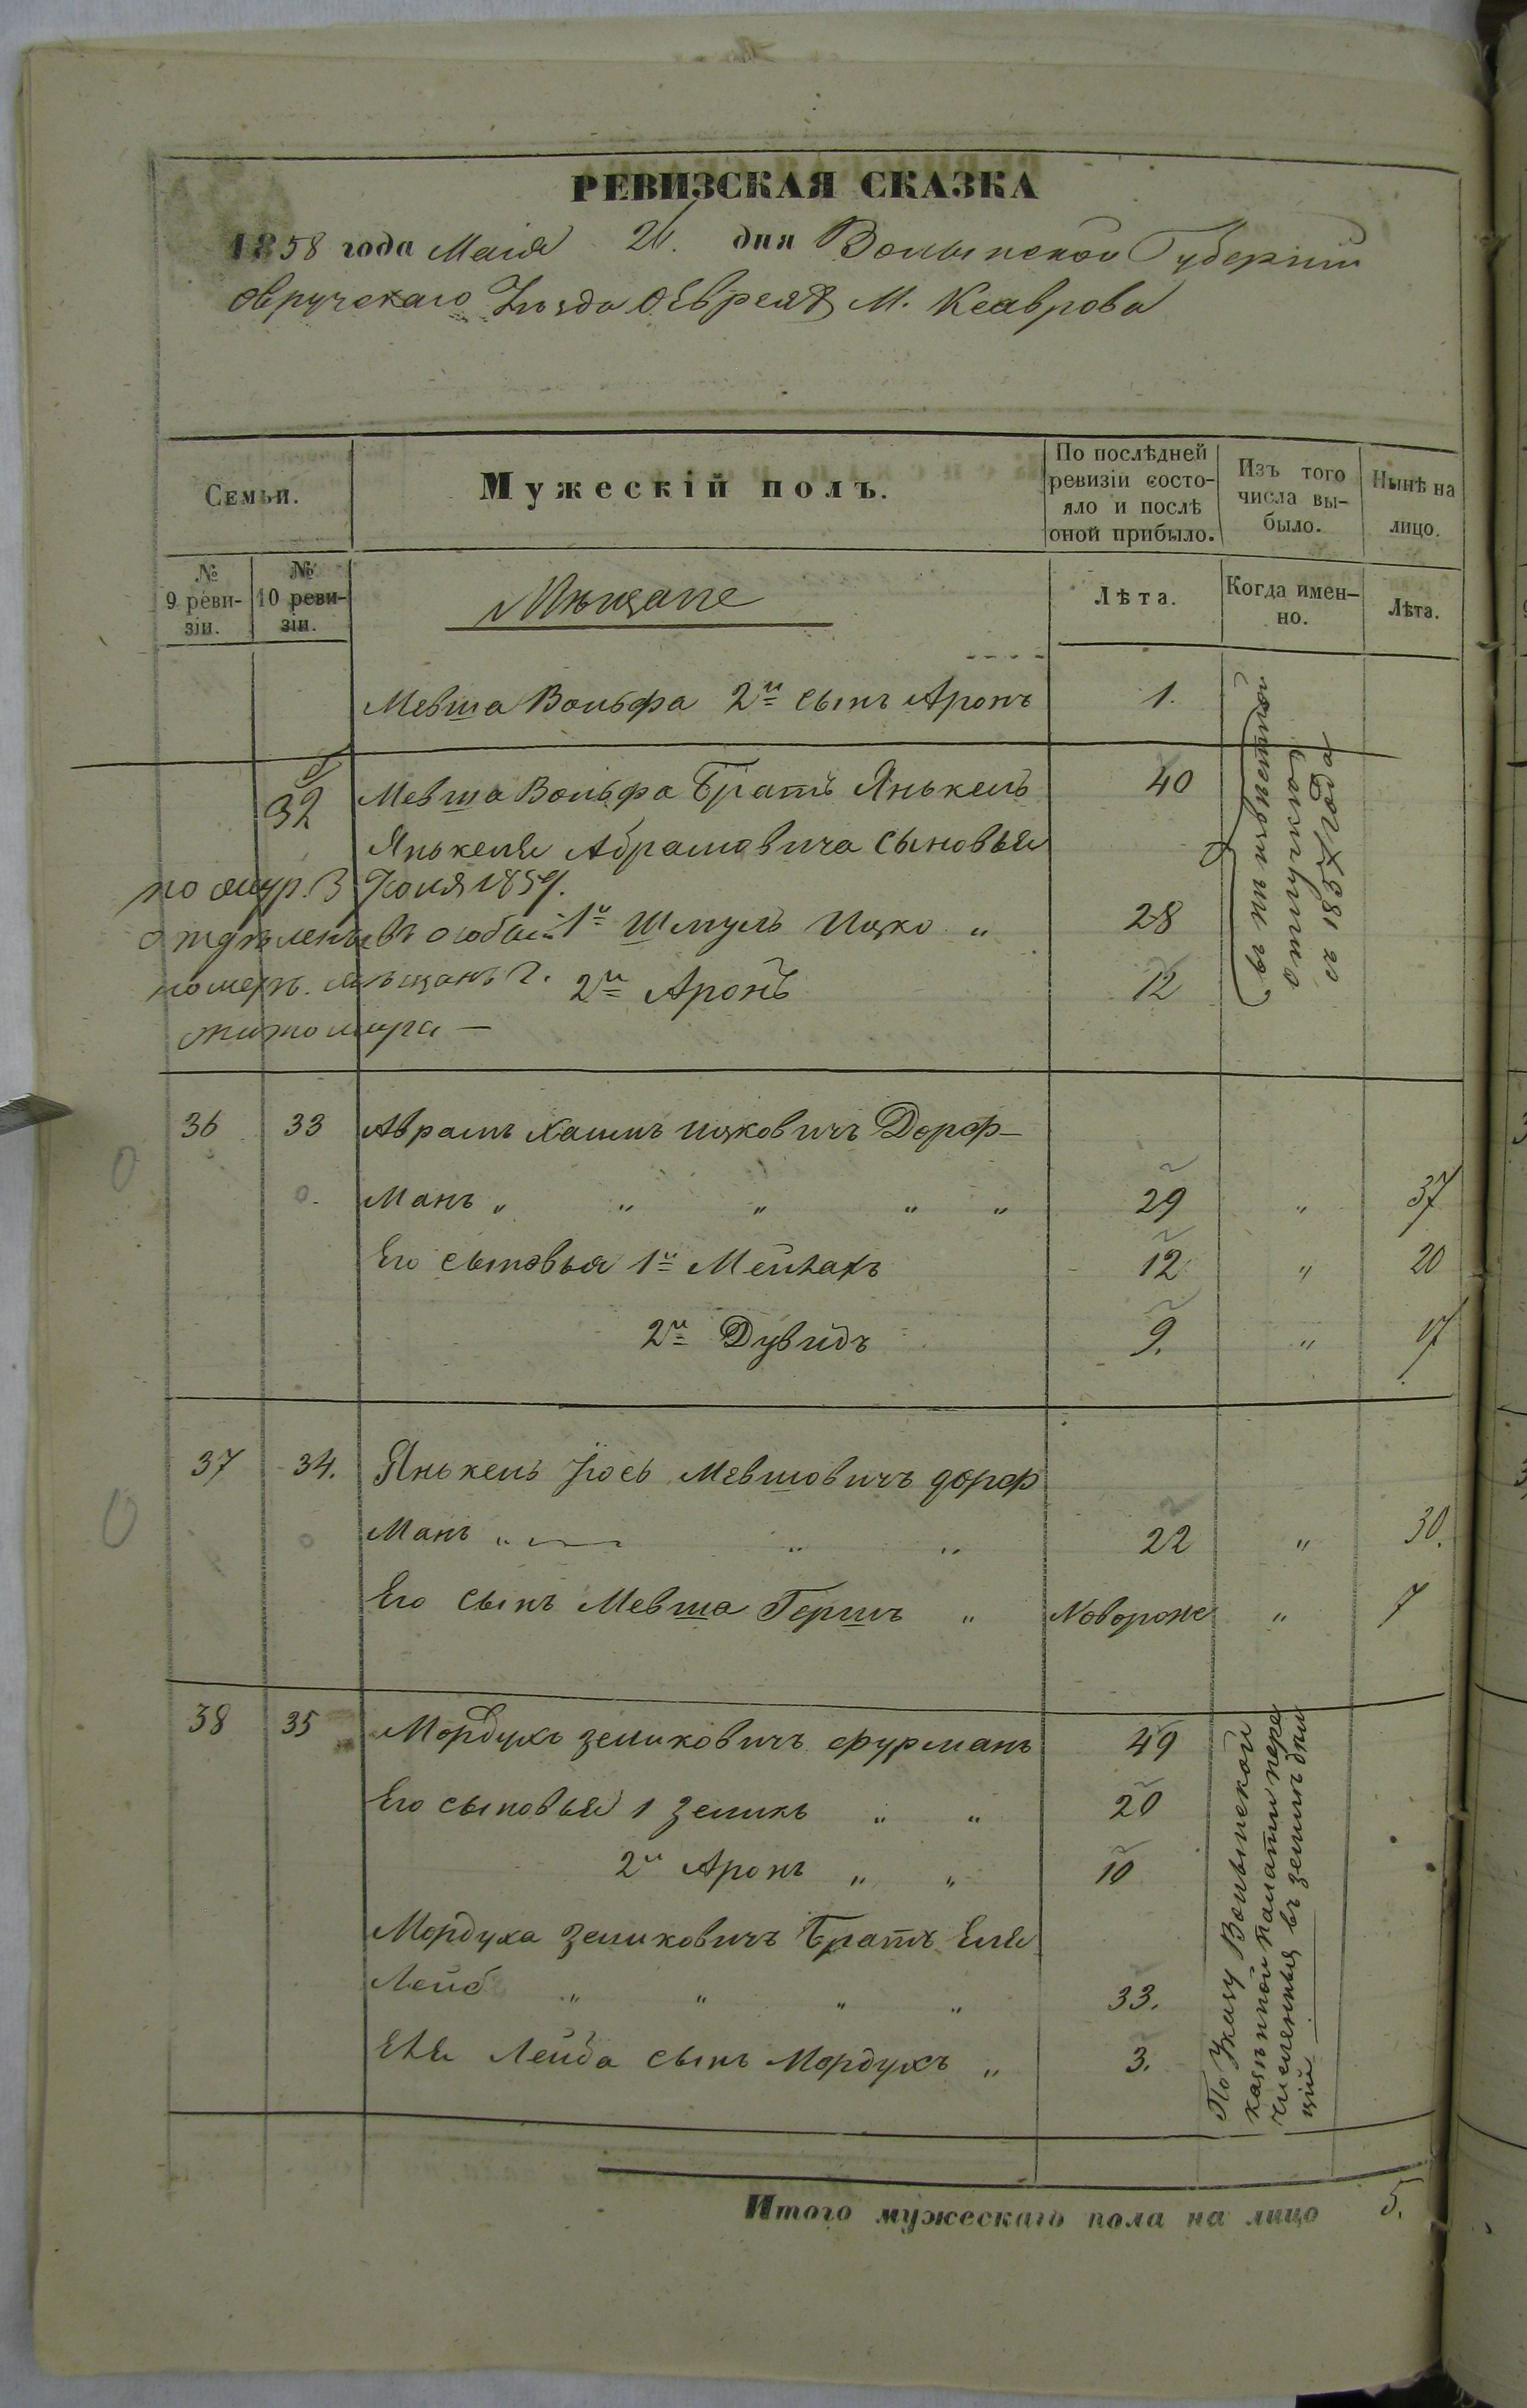 РЕВИЗСКАЯ СКАЗКА
1858 года Маія 26. дня Волынской Губерніи
Овручскаго Уезда О Евреяхъ М. Ксаврова
Семьи.
Мужескій полъ.
По послѣдней ревизіи состо-
яло и послѣ
оной прибыло.
Изъ того
числа вы-
было.
Нынѣ на
лицо.
№
9 реви-
зіи.
№
10 реви-
зіи.
Мѣщане
Лѣта.
Когда имен-
но.
Лѣта.
Мевша Вольфа 2й сынъ Аронъ 1.
32 Мевша Вольфа Братъ Янькель 40
Янькеля Абрамовича сыновья
по жур. 3 Іюля 1859.
отдѣленъ въ особый
номеръ. мѣщанъ г.
Житомира —
1й Шмуль Ицко „ 28
2й Аронъ 12
въ неизвѣстной
отлучкѣ
съ 1857 года
36 33 Аврамъ Хаимъ Ицковичъ Дорф-
Манъ „ „ „ „ „ 29 „ 37
Его сыновья 1й Мейлахъ 12 „ 20
2й Дувидъ 9. „ 17
37 34. Янькель Іось Мевшовичъ дорф
Манъ „ „ „ 22 „ 30.
Его сынъ Мевша Гершъ „ Новорожс „ 7
38 35 Мордухъ Зеликовичъ фурманъ 49
Его сыновья 1 Зеликъ „ „ 20
2й Аронъ „ „ 10
Мордуха Зеликовичъ Братъ Еля
Лейб „ „ „ „ 33.
Еля Лейба сынъ Мордухъ „ 3.
По Указу Волынской
казенной Палаты пере
численныя въ земледѣль
цы
Итого мужескаго пола на лицо 5.